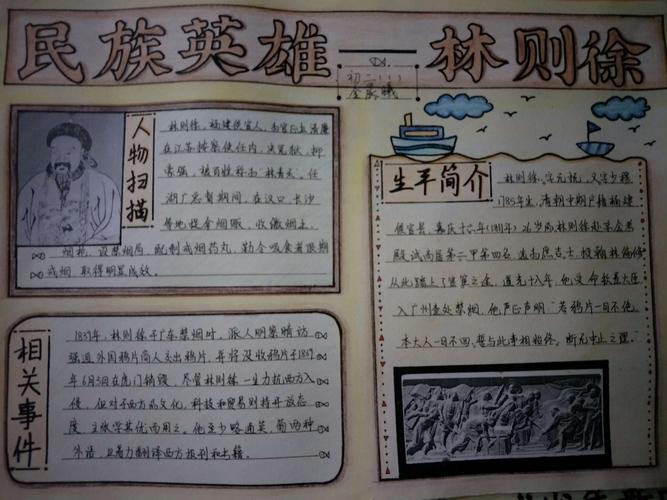 民族英雄——林则徐
初二(1)
人物扫描
林则徐,福建侯官人,为官正直清廉
在江苏按察使任内,决冤狱,抑
豪强,被百姓称为"林青天"。任
湖广总督期间,在汉口、长沙
等地捉拿烟贩,收缴烟土、
烟枪,设禁烟局,配制戒烟药丸,勒令吸食者限期
戒烟,取得明显成效。
生平简介
林则徐,字元抚,又字少穆
1785年生,清朝中期户籍福建
侯官县,嘉庆十六年(1811年)26岁的林则徐赴京会
殿试高居第二甲第四名,选为庶吉士,授翰林编修
从此踏上了官宦之途,道光十八年,他受命钦差大臣
入广州查处禁烟,他严正声明,"若鸦片一日不绝,
本大人一日不回,誓与此事相始终,断无中止之理。"
相关事件
1839年,林则徐于广东禁烟时,派人明察暗访
强迫外国鸦片商人交出鸦片,并将没收鸦片于1839
年6月3日在虎门销毁,尽管林则徐一生力抗西方入
侵,但对于西方的文化,科技和贸易则持开放态
度,主张学其优而用之。他至少略通英、葡两种
外语,且着力翻译西方报刊和书籍。